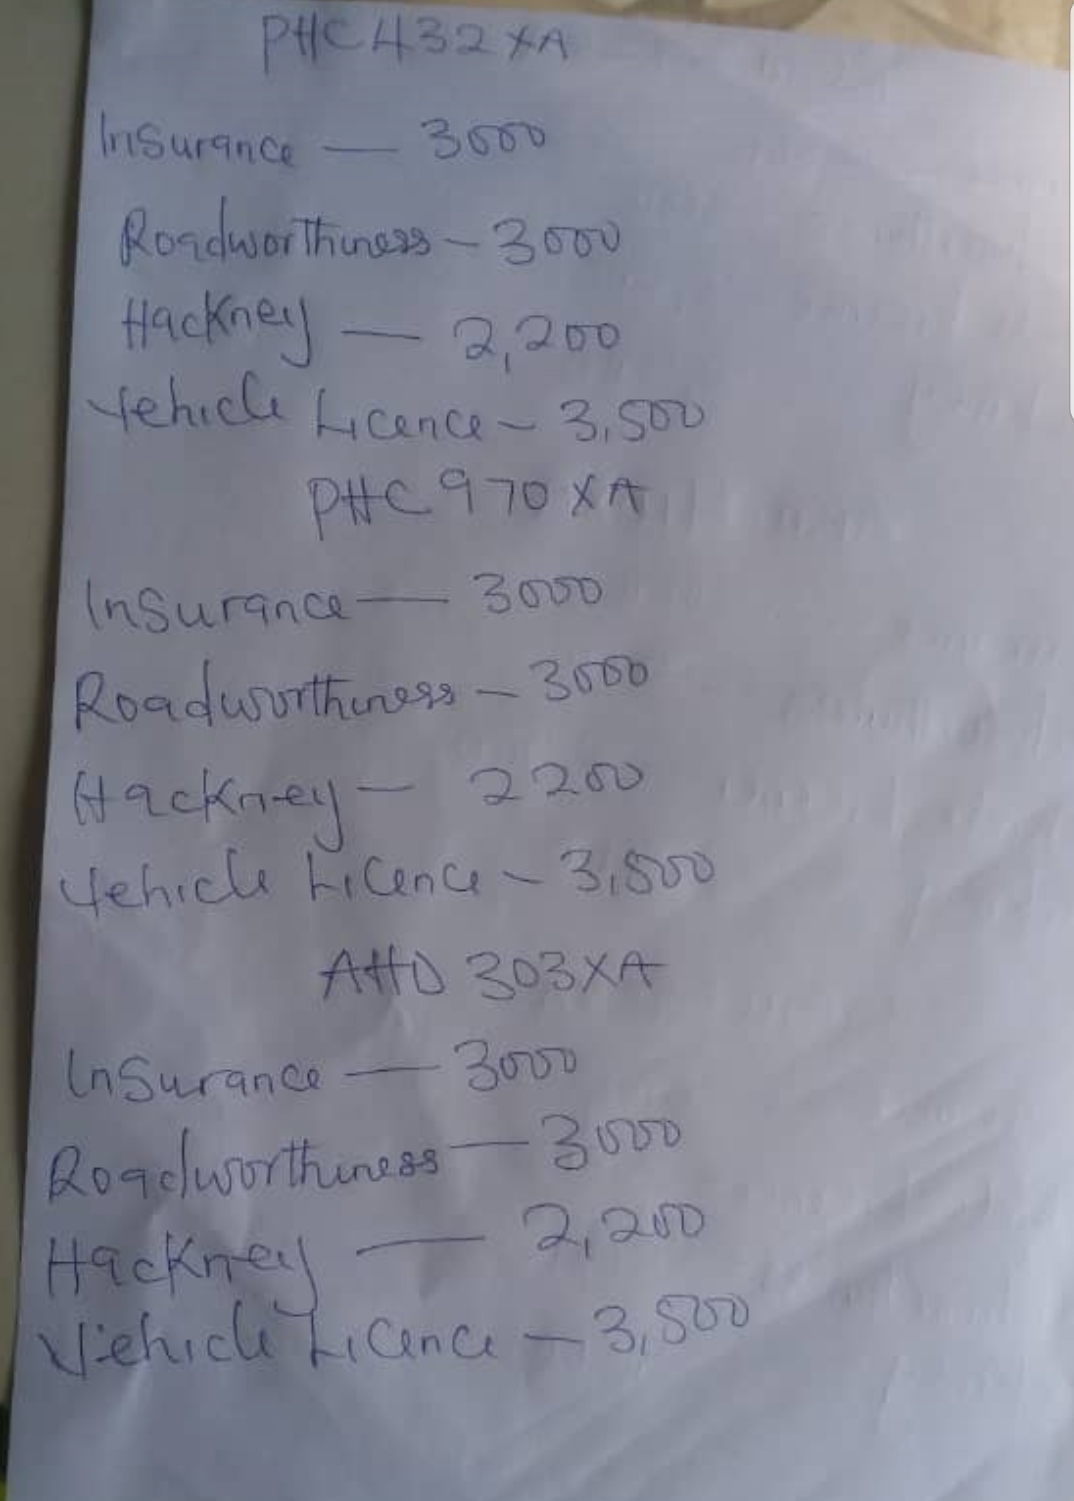 PHC 432 XA
Insurance — 3000
Roadworthiness - 3000
Hackney — 2,200
Vehicle Licence - 3,500
PHC 970 XA
Insurance — 3000
Roadworthiness - 3000
Hackney - 2200
Vehicle Licence - 3,500
AHD 303XA
Insurance — 3000
Roadworthiness — 3000
Hackney — 2,200
Vehicle Licence - 3,500